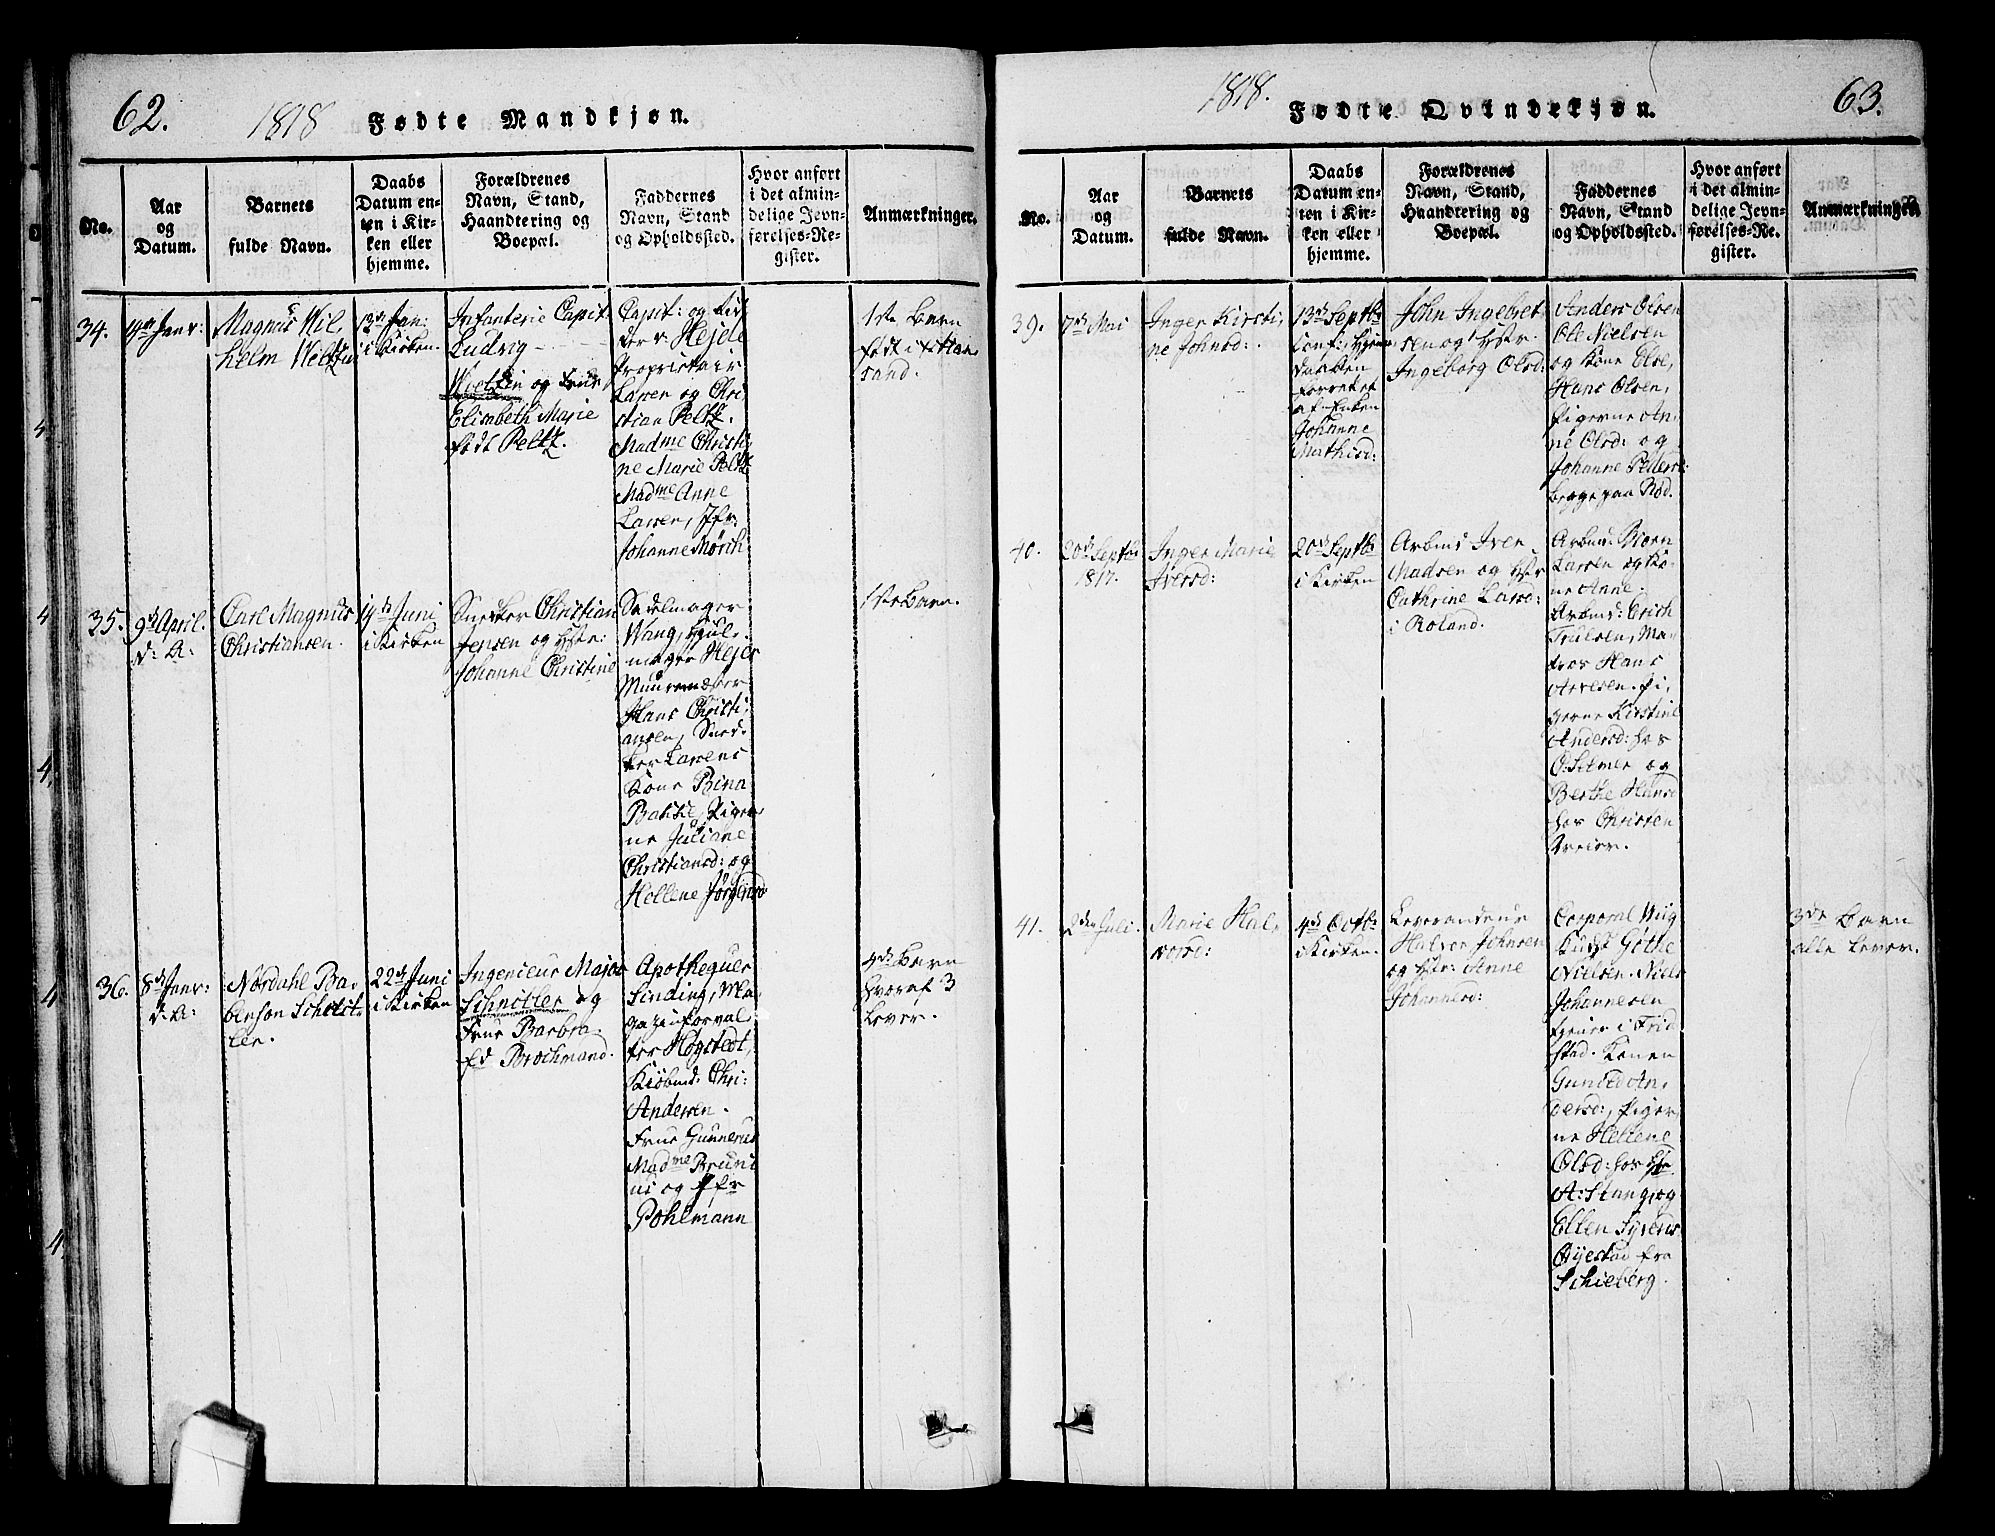 62.
1818 Fødte Mandkjøn.
No.
Aar
og
Datum.
Barnets
fulde Navn.
Daabs
Datum en-
ten i Kir-
ken eller
hjemme.
Forældrenes
Navn, Stand,
Haandtering og
Boepæl.
Faddernes
Navn, Stand
og Opholdssted.
Hvor anført
i det almin-
delige Jevn-
førelses-Re-
gister.
Anmærkninger.
34.
Janr:
Magnus Wil,
helm
13de Jan:
i Kirken.
Infanterie Capit.
Ludvig
og Frue
Elisabeth Marie
født Peltz.
Capit: og
der v. Hejde
Proprietair
Larsen og Chri,
stian Peltz.
Madme Christi,
ne Marie Peltz
Madme Anne
Larsen, Jfr.
Johanne Mørch
1ste Barn
født i
sand.
35.
9de April.
d: A:
Carl Magnus
Christiansen.
14de Juni
i Kirken
Snedker Christian
Jensen og Hstr:
Johanne Christine
Sadelmager
Wang, Hjul,
mager Hejer
Muurmæster
Hans Christi,
ansen, Sned,
ker Larsens
Kone Bina
Pigen,
ne Juliane
Christiansd: og
Hellene Jørgensd
1ste Barn.
36.
8de Janr:
d: A:
Nordahl Ba,
22de Juni
i Kirken
Ingenieur Major
Schnitler og
Frue Barbra
fd Brochmand.
Apothequer
Sinding, Ma,
gazinforval,
ter Høgstedt,
Kiøbmd. Chri:
Andersen.
Frue Gunnerus
Madme Bruni
og Jfr
Pohlmann
4de Barn
hvoraf 3
lever.
1818.
Fødte Qvindekjøn.
63.
No.
Aar
og
Datum.
Barnets
fulde Navn.
Daabs
Datum en-
ten i Kir-
ken eller
hjemme.
Forældrenes
Navn, Stand,
Haandtering og
Boepæl.
Faddernes
Navn, Stand
og Opholdssted.
Hvor anført
i det almin-
delige Jevn-
førelses-Re-
gister.
Anmærkninger.
39.
7de Mai
Inger Kirsti,
ne Johnsd:
13de Septbr
Conf: Hjemme
daaben
forrettet
af Enken
Johanne
Mathisd:
John Ingebret,
sen og Hstr.
Ingeborg Olsd:
Anders Olsen
Ole Nielsen
og Kone Else,
Hans Olsen,
Pigerne An,
ne Olsd: og
Johanne Pedersd:
begge paa Rød.
40.
20de Septbr
1817.
Inger Marie
Iversd:
20de Septbr
i Kirken
Arbmd Iver
Madsen og Hstr
Cathrine Larsd:
i Roland.
Arbmd: Biørn
Larsen og Ko,
ne Anne.
Arbmd: Erich
Trulsen, Ma,
tros Hans
Arvesen. Pi,
gerne Kirstine
Andersd: hos
O: Selmer og
Berthe Hansd
hos Christen
41.
2den Juli.
Marie Hal,
vorsd:
4de Octbr
i Kirken.
Leverandeur
Halvor Johnsen
og Hstr: Anne
Johannesd:
Corporal Wiig
Gøthe
Nielsen. Niels
Johannesen
tjener i Frid,
stad. Konen
Gunild An,
dersd:, Piger,
ne Hellene
Olsd: hos Hr
A: Stange og
Ellen Syvers
fra
Schieberg.
3de Barn
alle lever.